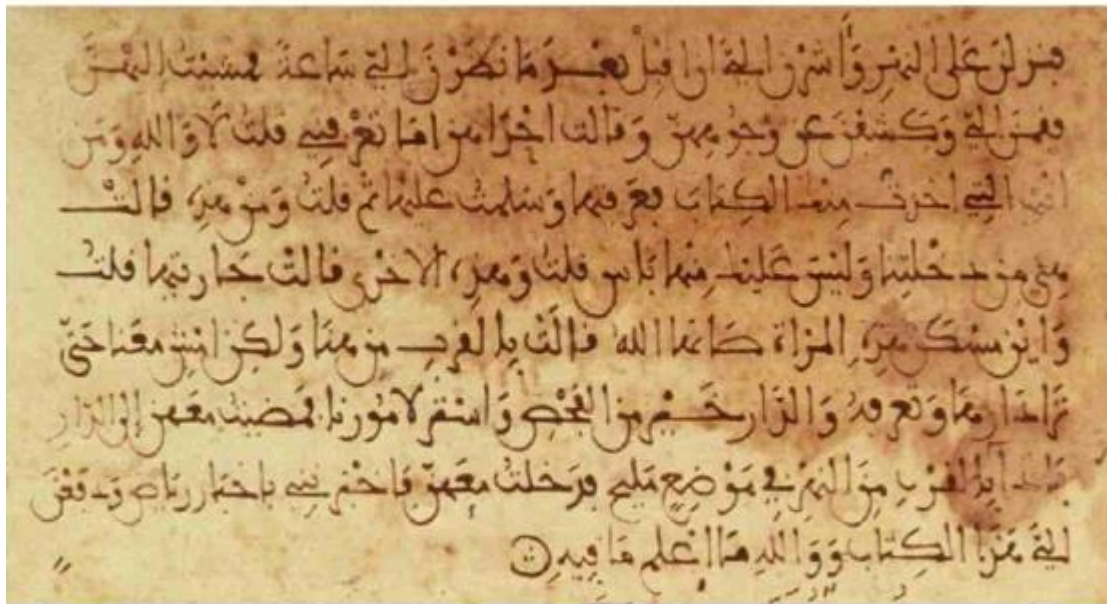 فنزلن على النهر وَأشرن إليّ ان اقبل بعد مَا نظرن إليّ سَاعة فمشيت إليهنّ
فقمن إليّ وَكشفن عن وجوههنّ وَقالت احداهن امَا تعرفني قلتُ لا وَالله وَمن
انت التي اخذت منك الكتاب فعرفتها وَسلمتُ عليها ثم قلتُ وَمن هذه قالتْ
هي من دخلتها وَليس عَليك منها بَأس قلتُ وَهذه الاخرى قالتْ جَاريتها قلتُ
وَاين مسكن هذه المرْاة صَانها اللهُ قالتْ بالقرب من هنا وَلكن ائت معنا حَتّى
ترا دَارها وَتعرفه وَالدّار خَير من الفحص وَاستر لامورنا فمضيت معهن إلى الدّار
فاذا بالقرْب من النهر في مَوْضع مليح فدخلتُ معَهنّ فاخبرنني باخبار رياض وَدفعْن
إليّ هَذا الكتاب وَوَالله مَا اعْلم مَا فيه